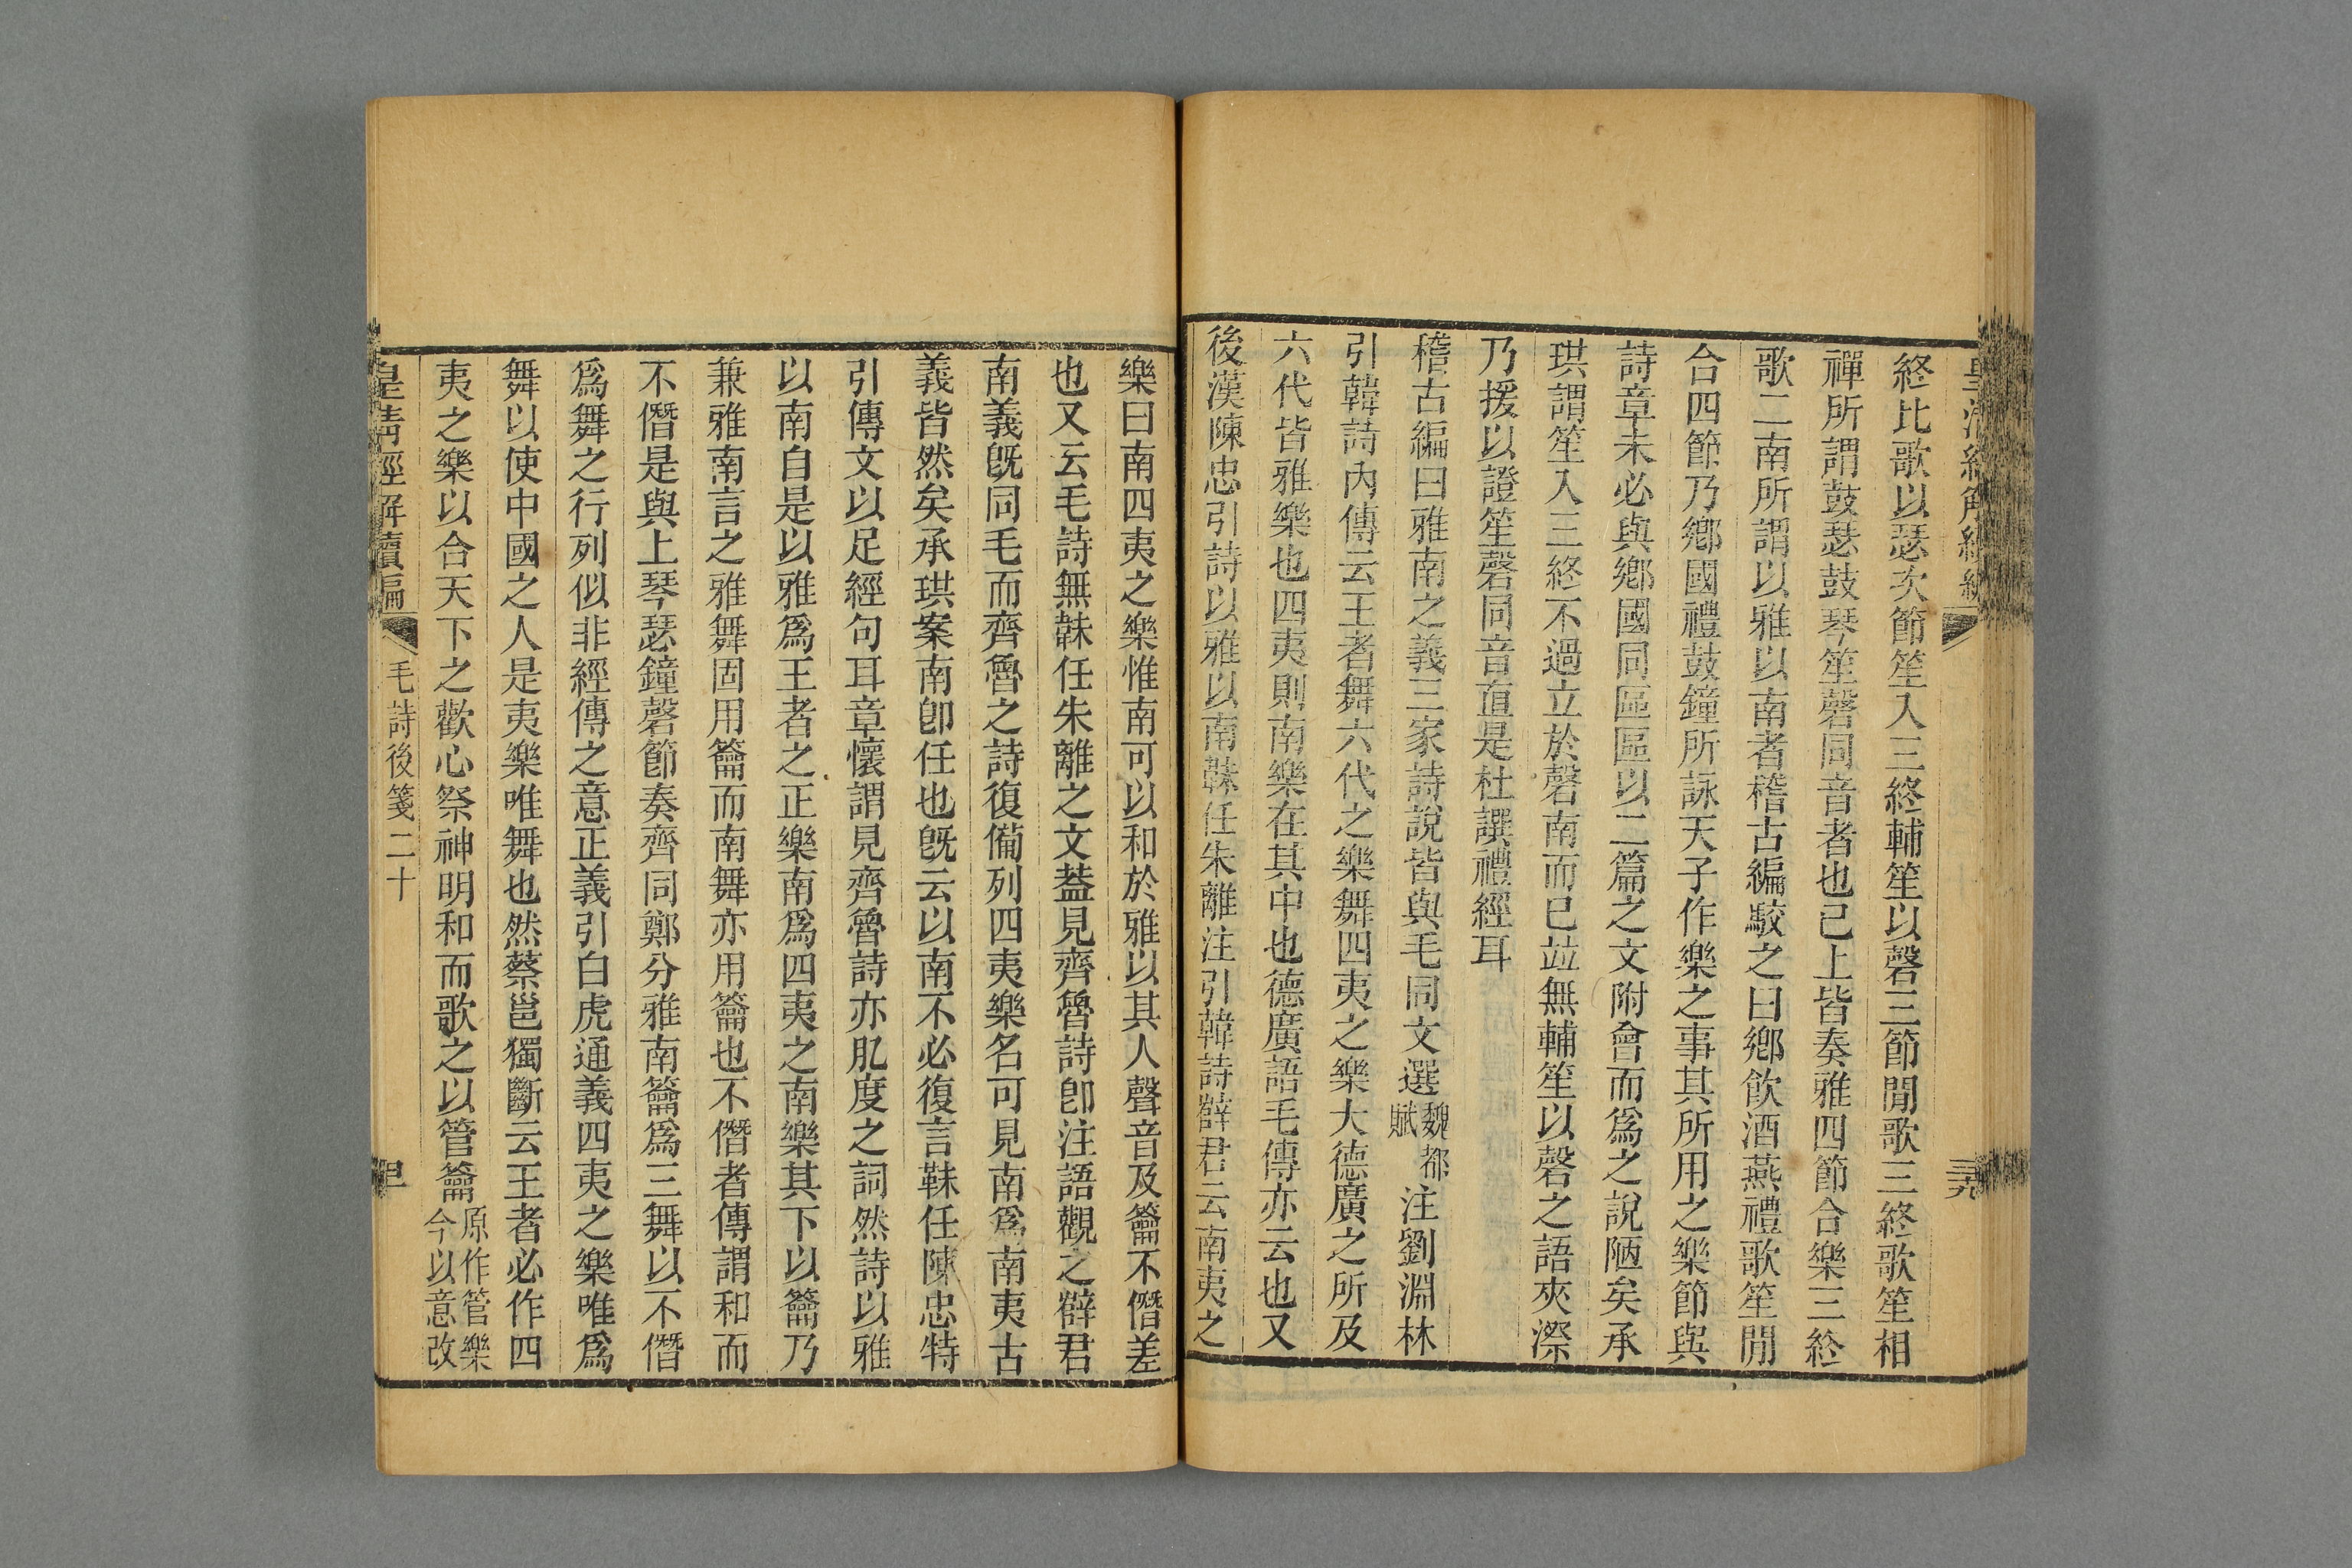 皇清經解續編
三九
終比歌以瑟次節笙入三終輔笙以磬三節閒歌三終歌笙相
禪所謂鼓瑟鼓琴笙磬同音者也己上皆奏雅四節合樂三終
歌二南所謂以雅以南者稽古編駮之曰鄉飮酒燕禮歌笙閒
合四節乃鄉國禮鼓鐘所詠天子作樂之事其所用之樂節與
詩章未必與鄉國同區區以二篇之文附會而爲之說陋矣承
珙謂笙入三終不過立於磬南而已竝無輔笙以磬之語夾漈
乃援以證笙磬同音直是杜譔禮經耳
稽古編曰雅南之義三家詩說皆與毛同文選魏都賦注劉淵林
引韓詩內傳云王者舞六代之樂舞四夷之樂大德廣之所及
六代皆雅樂也四夷則南樂在其中也德廣語毛傳亦云也又
後漢陳忠引詩以雅以南韎任朱離注引韓詩薛君云南夷之
樂曰南四夷之樂惟南可以和於雅以其人聲音及籥不僭差
也又云毛詩無韎任朱離之文葢見齊魯詩卽注語觀之薛君
南義旣同毛而齊魯之詩復備列四夷樂名可見南爲南夷古
義皆然矣承珙案南卽任也旣云以南不必復言韎任陳忠特
引傳文以足經句耳章懷謂見齊魯詩亦肊度之詞然詩以雅
以南自是以雅爲王者之正樂南爲四夷之南樂其下以籥乃
兼雅南言之雅舞固用籥而南舞亦用籥也不僭者傳謂和而
不僭是與上琴瑟鐘磬節奏齊同鄭分雅南籥爲三舞以不僭
爲舞之行列似非經傳之意正義引白虎通義四夷之樂唯爲
舞以使中國之人是夷樂唯舞也然蔡邕獨斷云王者必作四
夷之樂以合天下之歡心祭神明和而歌之以管籥原作管樂今以意改
皇清經解續編
毛詩後箋二十